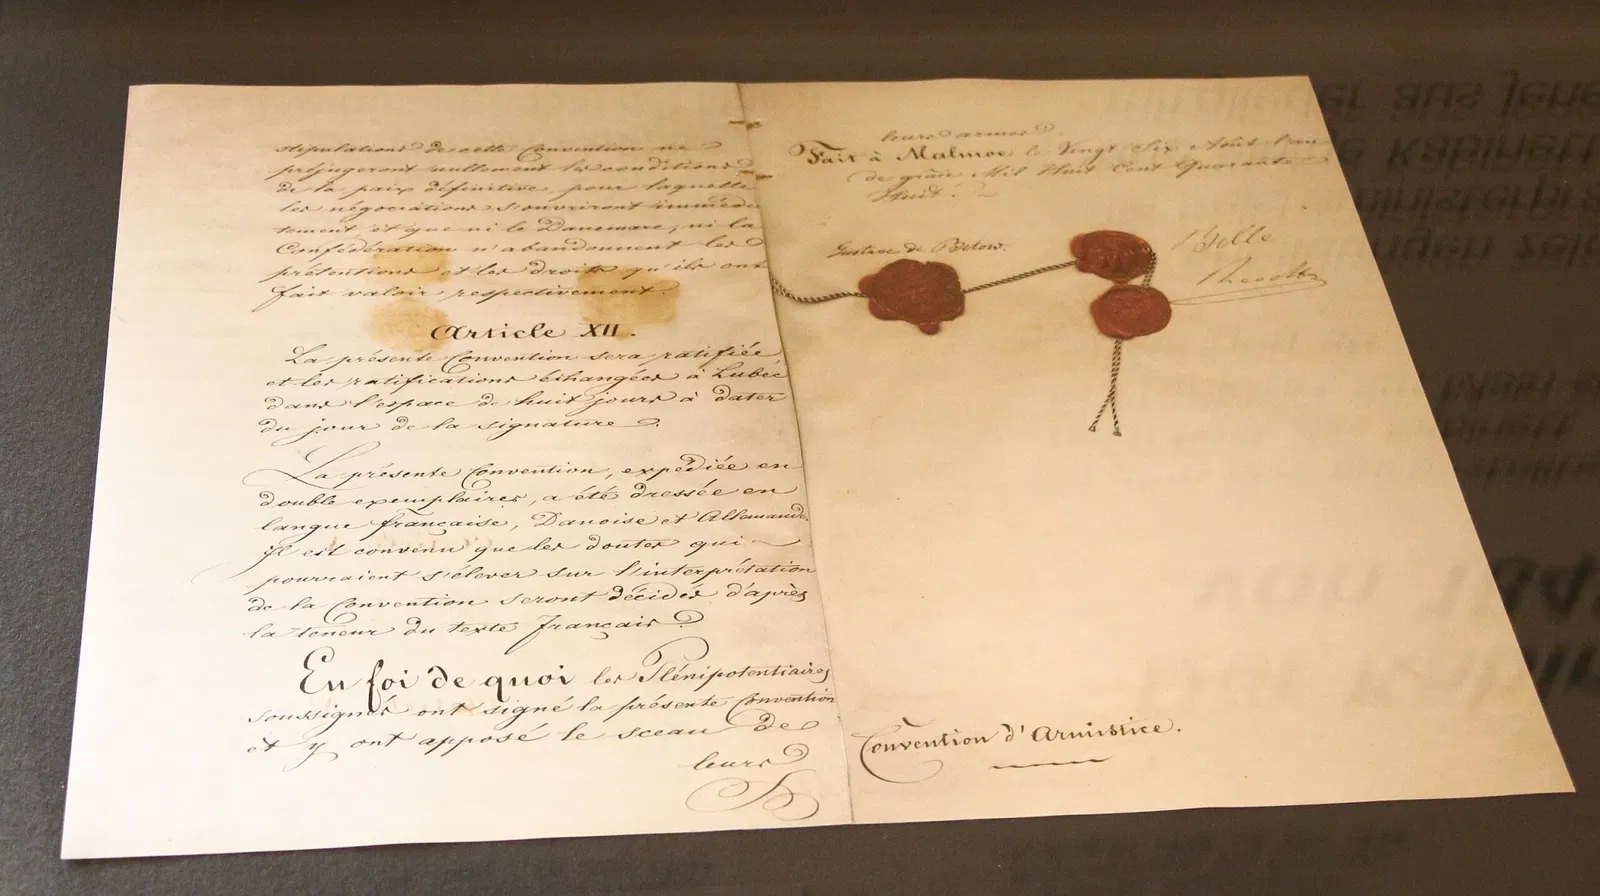 stipulations de cette Convention ne
préjugeront nullement les conditions
de la paix définitive, pour laquelle
les négociations s'ouvriront immédia
tement, et que ni le Danemarc, ni la
Confédération n'abandonnent les
prétentions et les droits qu'ils ont
fait valoir respectivement.
Article XII.
La présente Convention sera ratifiée
et les ratifications échangées à Lubec
dans l'espace de huit jours à dater
du jour de la signature.
La présente Convention, expédiée en
double exemplaires, a été dressée en
langue française, Danoise et Allemande.
Il est convenu que les doutes qui
pourraient s'élever sur l'interprétation
de la Convention seront décidés d'après
la teneur du texte français.
En foi de quoi les Plénipotentiaires
soussignés ont signé la présente Convention
et y ont apposé le sceau de
leurs
leurs armes.
Fait à Malmoe le Vingt Six Août l'an
de grâce Mil Huit Cent Quarante
Huit.
Gustave de Below.
Bille
Reedtz
Convention d'Armistice.